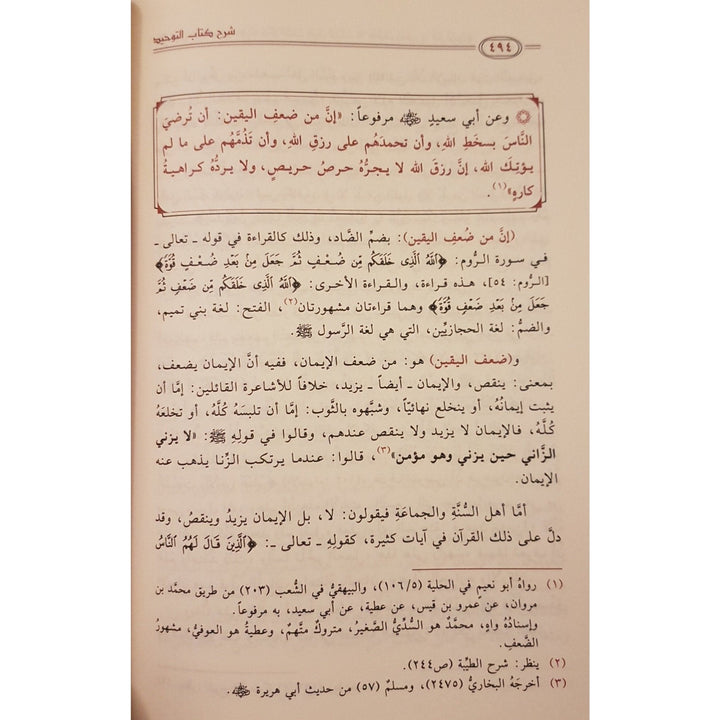 شرح كتاب التوحيد
٤٩٤
وعن أبي سعيدٍ ﵁ مرفوعاً: «إنَّ من ضعفِ اليقين: أن تُرضيَ
النَّاسَ بسخَطِ اللهِ، وأن تحمدَهُم على رزقِ اللهِ، وأن تَذُمَّهُم على ما لم
يؤتِكَ الله، إنَّ رزقَ الله لا يجرُّهُ حرصُ حريصٍ، ولا يردُّهُ كراهيةُ
كارهٍ»(١).
(إنَّ من ضُعفِ اليقين): بضمِّ الضَّاد، وذلك كالقراءة في قوله ـ تعالى ـ
في سورة الرُّوم: ﴿ٱللَّهُ ٱلَّذِى خَلَقَكُم مِّن ضُعْفٍ ثُمَّ جَعَلَ مِنۢ بَعْدِ ضُعْفٍ قُوَّةً﴾
[الرُّوم: ٥٤]، هذه قراءة، والقراءة الأخرى: ﴿ٱللَّهُ ٱلَّذِى خَلَقَكُم مِّن ضَعْفٍ ثُمَّ
جَعَلَ مِنۢ بَعْدِ ضَعْفٍ قُوَّةً﴾ وهما قراءتان مشهورتان(٢)، الفتح: لغة بني تميم،
والضمُّ: لغة الحجازيِّين، التي هي لغة الرَّسول ﷺ.
و(ضعف اليقين) هو: من ضعف الإيمان، ففيه أنَّ الإيمان يضعف،
بمعنى: ينقص، والإيمان ـ أيضاً ـ يزيد، خلافاً للأشاعرة القائلين: إمَّا أن
يثبت إيمانُهُ، أو ينخلع نهائيّاً، وشبَّهوه بالثَّوب: إمَّا أن تلبسَهُ كُلَّهُ، أو تخلعَهُ
كُلَّهُ، فالإيمان لا يزيد ولا ينقص عندهم، وقالوا في قولِهِ ﷺ: «لا يزني
الزَّاني حين يزني وهو مؤمن»(٣)، قالوا: عندما يرتكب الزِّنا يذهب عنه
الإيمان.
أمَّا أهل السُّنَّةِ والجماعَةِ فيقولون: لا، بل الإيمان يزيدُ وينقصُ، وقد
دلَّ على ذلك القرآن في آيات كثيرة، كقولِهِ ـ تعالى ـ: ﴿ٱلَّذِينَ قَالَ لَهُمُ ٱلنَّاسُ
(١) رواهُ أبو نعيمٍ في الحلية (١٠٦/٥)، والبيهقيُّ في الشُّعب (٢٠٣) من طريق محمَّد بن
مروان، عن عمرو بن قيس، عن عطية، عن أبي سعيد، به مرفوعاً.
وإسنادُهُ واهٍ، محمَّدٌ هو السُّدِّيُّ الصَّغيرُ، متروكٌ متَّهمٌ، وعطيةُ هو العوفيُّ، مشهورُ
الضَّعفِ.
(٢) ينظر: شرح الطيِّبة (ص٢٤٤).
(٣) أخرجَهُ البخاريُّ (٢٤٧٥)، ومسلمٌ (٥٧) من حديث أبي هريرة ﵁.